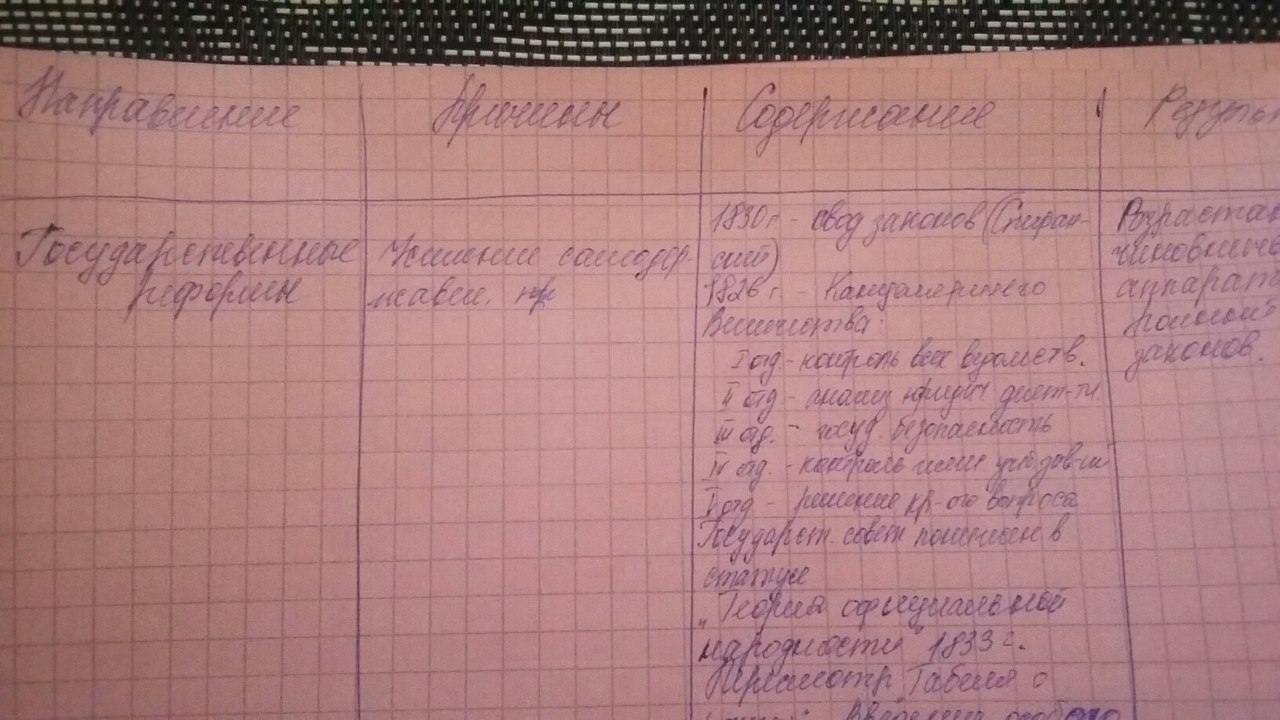 Направление
Причины
Содержание
Резуль
Государственные
реформы
Усиление самодер-
жавия, пр
1830г - свод законов (Сперан-
ский)
1826г - Канцелярия его
Величества:
I отд - контроль всех ведомств.
II отд - анализ юридич деят-ти
III отд. - госуд. безопасность
IV отд. - контроль учеб. зав-ий
V отд - решение кр-ого вопроса
Государст. совет понижен в
статусе
„Теория официальной
народности" 1833 г.
Пересмотр Табеля о
Введение особого
Возрастан
чиновнич
аппарата
законов.